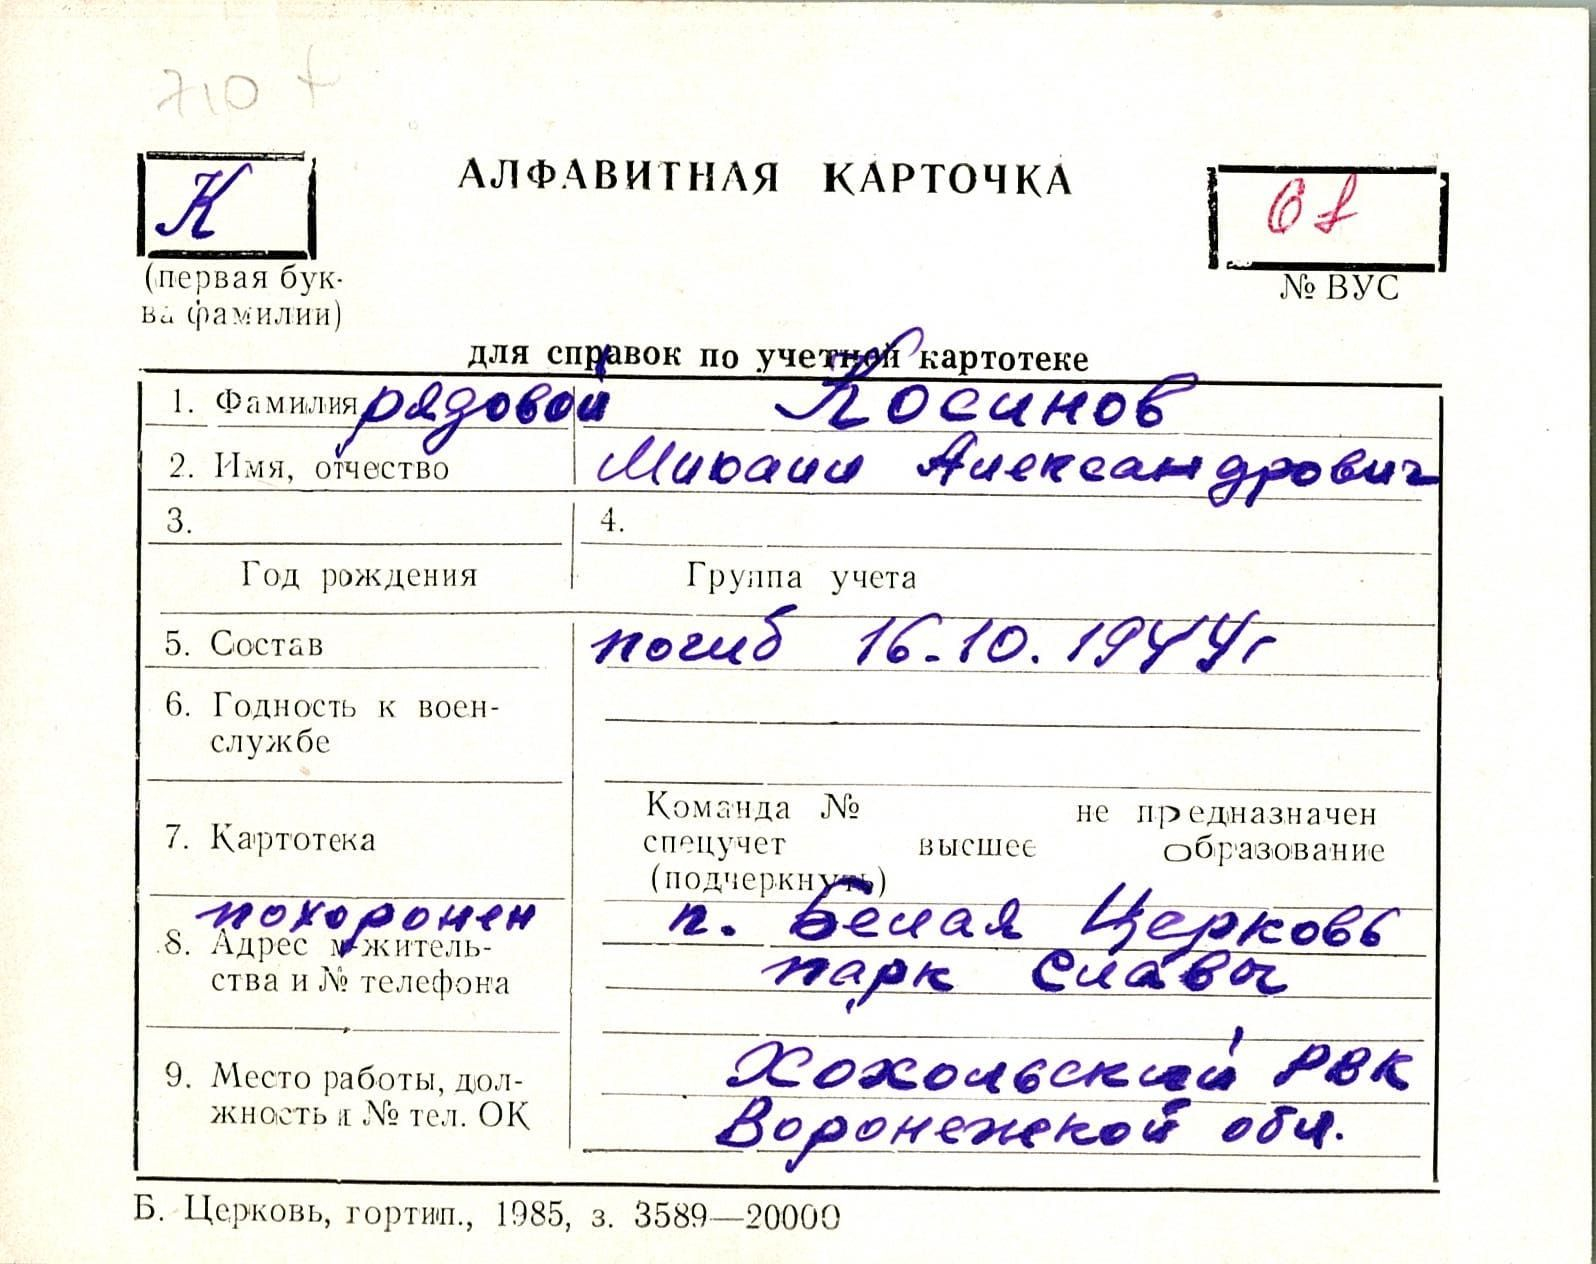 710 +
К
АЛФАВИТНАЯ КАРТОЧКА
(первая бук-
ва фамилии)
№ ВУС
для справок по учетной картотеке
1. Фамилия рядовой Косинов
2. Имя, отчество Михаил Александрович
3. 4.
Год рождения Группа учета
5. Состав погиб 16.10.1944г
6. Годность к воен-
службе
Команда № не предназначен
7. Картотека спецучет высшее образование
(подчеркнуть)
похоронен п. Белая Церковь
8. Адрес м-житель- парк Славы
ства и № телефона
9. Место работы, дол- Хохольский РВК
жность и № тел. ОК Воронежской обл.
Б. Церковь, гортип., 1985, з. 3589—20000